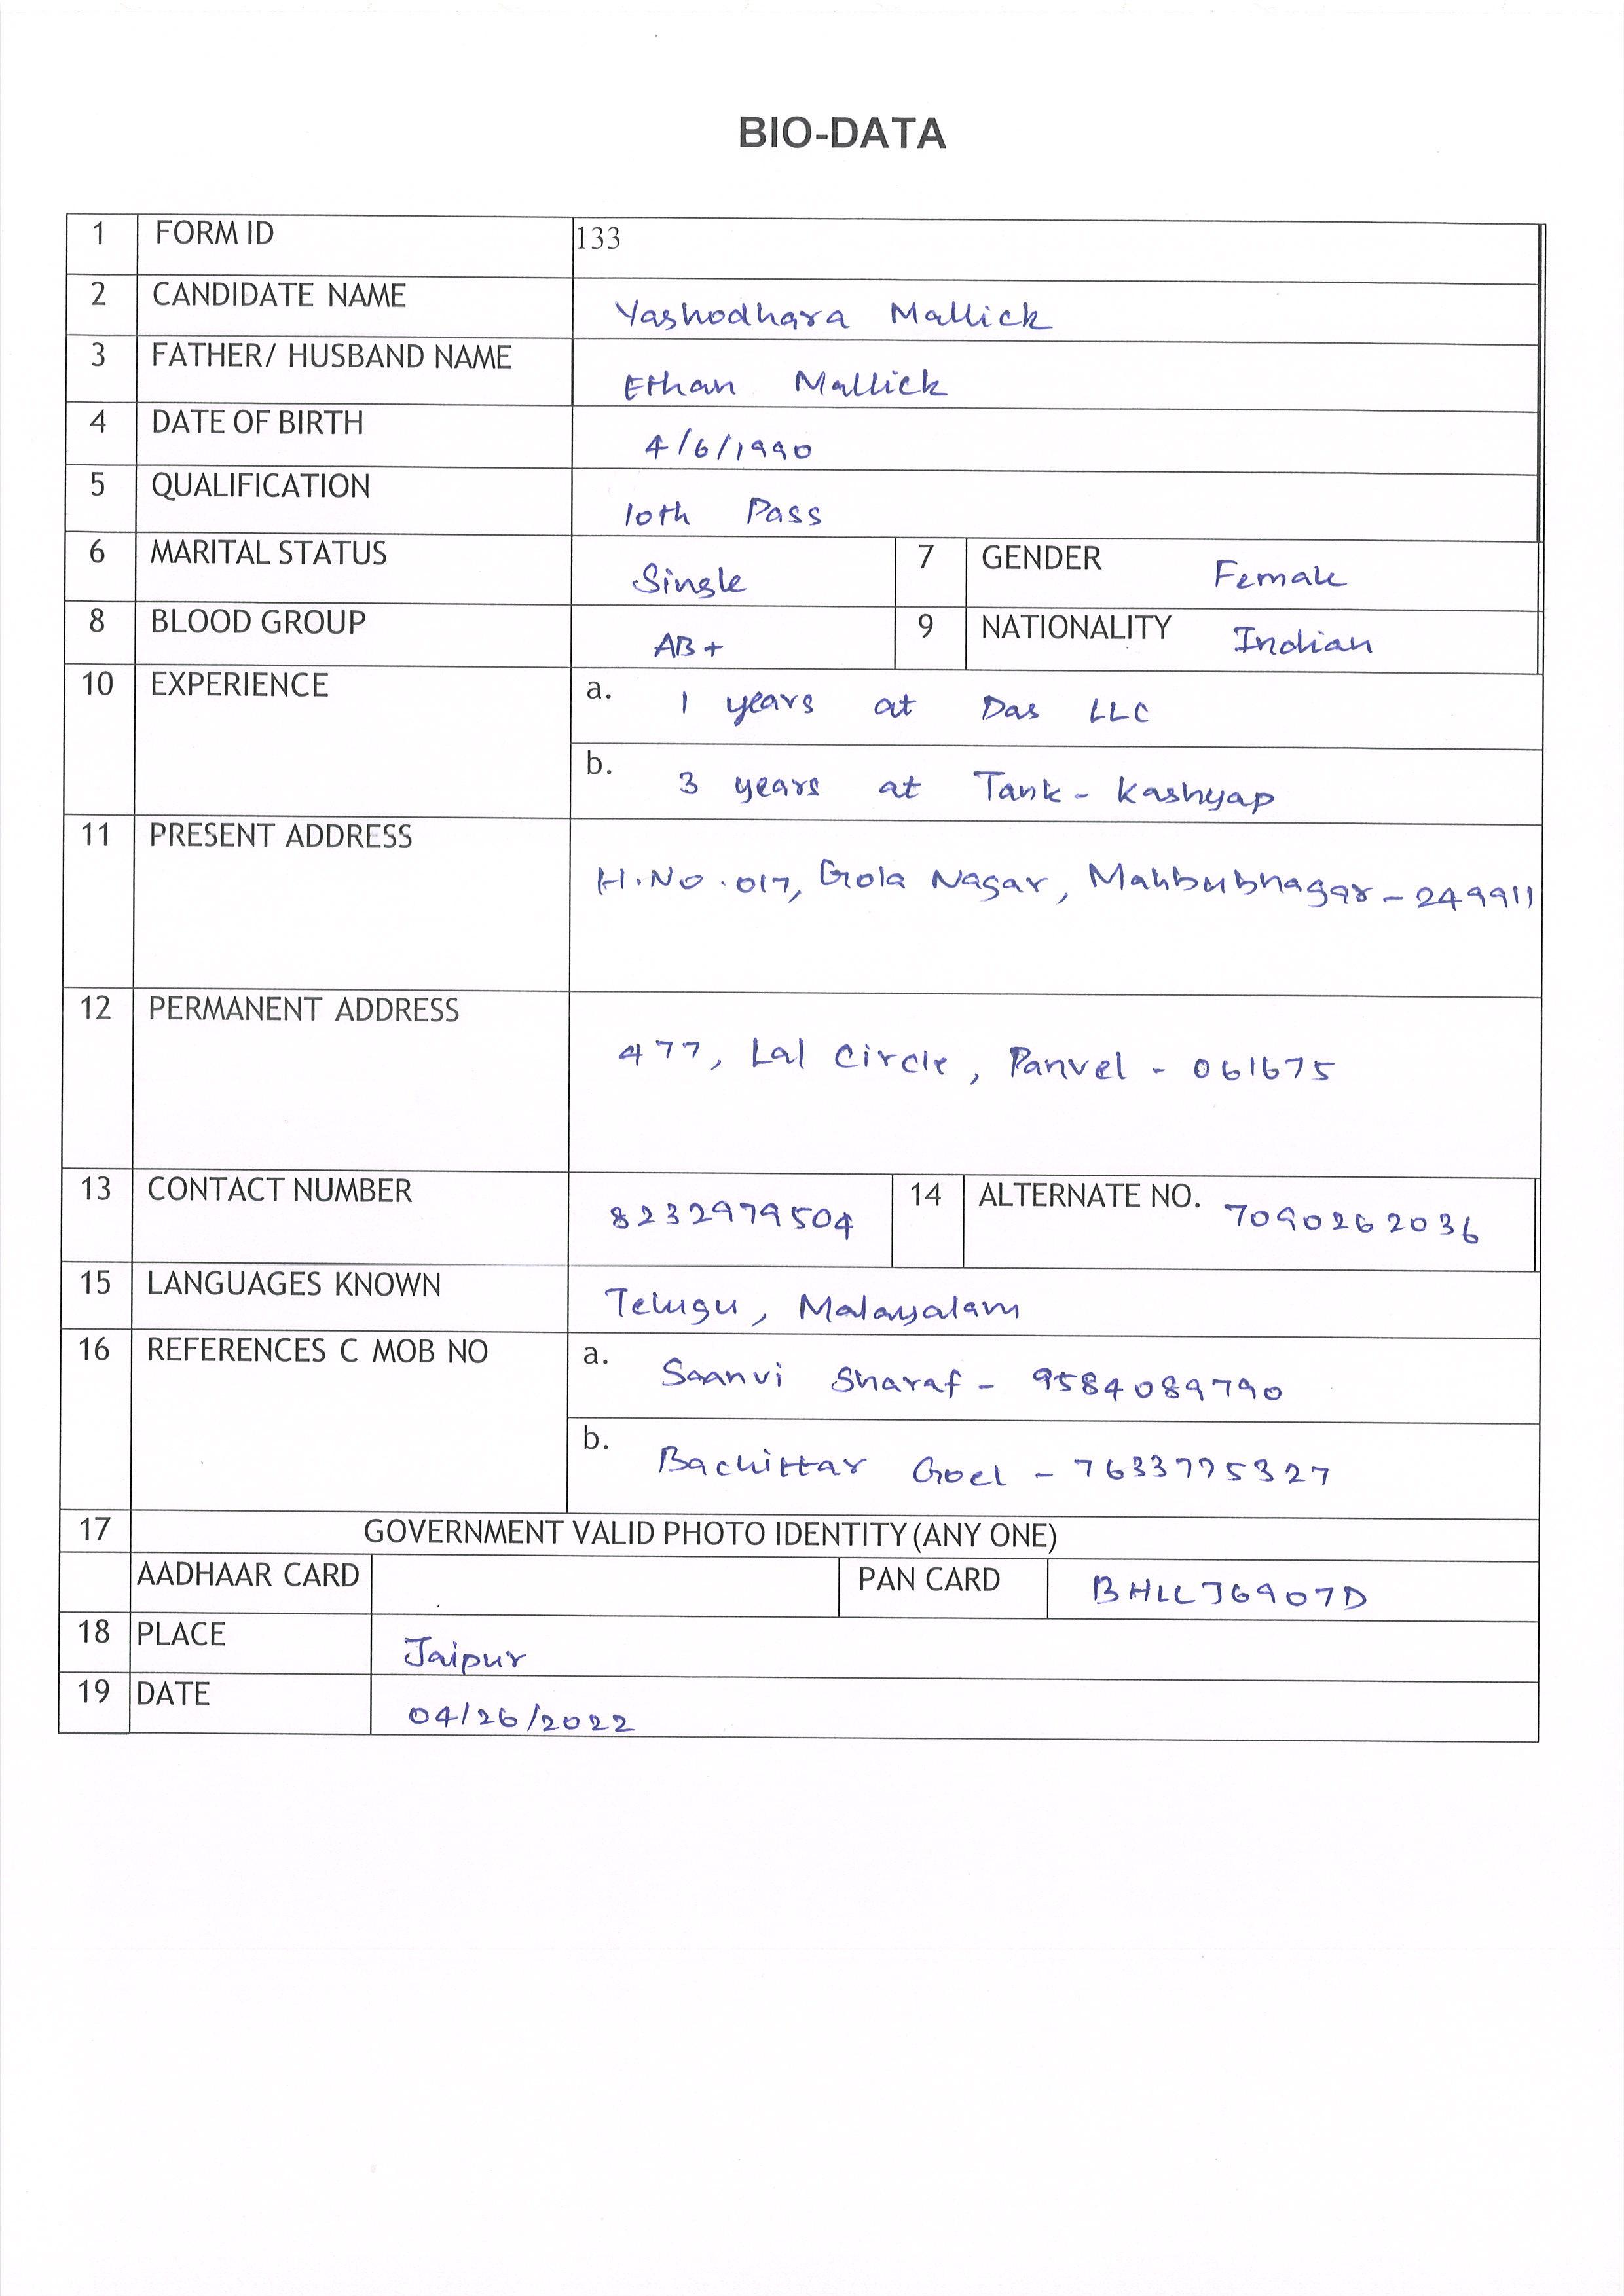 BIO-DATA
1 FORM ID 133
2 CANDIDATE NAME Yashodhara Mallick
3 FATHER/ HUSBAND NAME Ethan Mallick
4 DATE OF BIRTH 4/6/1990
5 QUALIFICATION 10th Pass
6 MARITAL STATUS Single 7 GENDER Female
8 BLOOD GROUP AB+ 9 NATIONALITY Indian
10 EXPERIENCE a. 1 years at Das LLC
b. 3 years at Tank - Kashyap
11 PRESENT ADDRESS H.No. 017, Gola Nagar, Mahbubnagar - 249911
12 PERMANENT ADDRESS 477, Lal Circle, Panvel - 061675
13 CONTACT NUMBER 8232979504 14 ALTERNATE NO. 7090262036
15 LANGUAGES KNOWN Telugu, Malayalam
16 REFERENCES C MOB NO a. Saanvi Sharaf - 9584089790
b. Bachittar Goel - 7633775327
17 GOVERNMENT VALID PHOTO IDENTITY (ANY ONE)
AADHAAR CARD PAN CARD BHLLJ6907D
18 PLACE Jaipur
19 DATE 04/26/2022